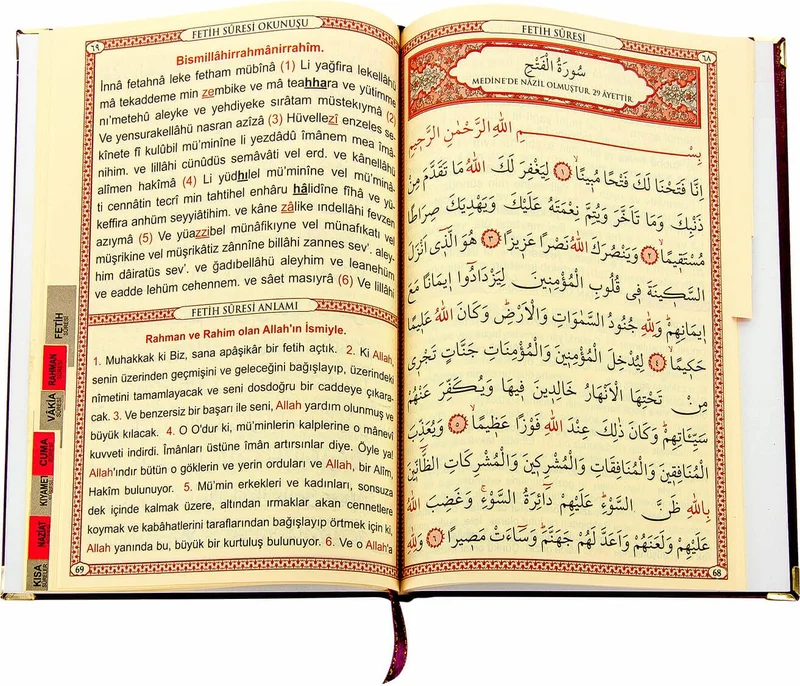 FETİH SÛRESİ
٦٨
سُورَةُ الْفَتْحِ
MEDİNE'DE NÂZİL OLMUŞTUR. 29 ÂYETTİR.
بِسْمِ اللهِ الرَّحْمٰنِ الرَّحِيمِ
اِنَّا فَتَحْنَا لَكَ فَتْحًا مُبِينًاۙ ﴿١﴾ لِيَغْفِرَ لَكَ اللهُ مَا تَقَدَّمَ مِنْ
ذَنْبِكَ وَمَا تَاَخَّرَ وَيُتِمَّ نِعْمَتَهُ عَلَيْكَ وَيَهْدِيَكَ صِرَاطًا
مُسْتَقِيمًاۙ ﴿٢﴾ وَيَنْصُرَكَ اللهُ نَصْرًا عَزِيزًا ﴿٣﴾ هُوَ الَّذِٓي اَنْزَلَ
السَّكِينَةَ فِي قُلُوبِ الْمُؤْمِنِينَ لِيَزْدَادُٓوا اِيمَانًا مَعَ
اِيمَانِهِمْۜ وَلِلّٰهِ جُنُودُ السَّمٰوَاتِ وَالْاَرْضِۜ وَكَانَ اللهُ عَلِيمًا
حَكِيمًاۙ ﴿٤﴾ لِيُدْخِلَ الْمُؤْمِنِينَ وَالْمُؤْمِنَاتِ جَنَّاتٍ تَجْرِي
مِنْ تَحْتِهَا الْاَنْهَارُ خَالِدِينَ فِيهَا وَيُكَفِّرَ عَنْهُمْ
سَيِّـَٔاتِهِمْۜ وَكَانَ ذٰلِكَ عِنْدَ اللهِ فَوْزًا عَظِيمًاۙ ﴿٥﴾ وَيُعَذِّبَ
الْمُنَافِقِينَ وَالْمُنَافِقَاتِ وَالْمُشْرِكِينَ وَالْمُشْرِكَاتِ الظَّٓانِّينَ
بِاللهِ ظَنَّ السَّوْءِۜ عَلَيْهِمْ دَٓائِرَةُ السَّوْءِۚ وَغَضِبَ اللهُ
عَلَيْهِمْ وَلَعَنَهُمْ وَاَعَدَّ لَهُمْ جَهَنَّمَۜ وَسَٓاءَتْ مَصِيرًا ﴿٦﴾ وَلِلّٰهِ
68
FETİH SÛRESİ OKUNUŞU
٦٩
Bismillâhirrahmânirrahîm.
İnnâ fetahnâ leke fetham mübînâ (1) Li yağfira lekellâhü
mâ tekaddeme min zembike ve mâ teahhara ve yütimme
nı'metehû aleyke ve yehdiyeke sırâtam müstekıymâ (2)
Ve yensurakellâhü nasran azîzâ (3) Hüvellezî enzeles se-
kînete fî kulûbil mü'minîne li yezdâdû îmânem mea îmâ-
nihim. ve lillâhi cünûdüs semâvâti vel erd. ve kânellâhü
alîmen hakîmâ (4) Li yüdhılel mü'minîne vel mü'minâ-
ti cennâtin tecrî min tahtihel enhâru hâlidîne fîhâ ve yü-
keffira anhüm seyyiâtihim. ve kâne zâlike ındellâhi fevzen
azıymâ (5) Ve yüazzibel münâfikıyne vel münafıkati vel
müşrikine vel müşrikâtiz zânnîne billâhi zannes sev'. aley-
him dâiratüs sev'. ve ğadıbellâhü aleyhim ve leanehüm
ve eadde lehüm cehennem. ve sâet masıyrâ (6) Ve lillâhi
FETİH SÛRESİ ANLAMI
Rahman ve Rahim olan Allah'ın İsmiyle.
1. Muhakkak ki Biz, sana apâşikâr bir fetih açtık. 2. Ki Allah,
senin üzerinden geçmişini ve geleceğini bağışlayıp, üzerindeki
nîmetini tamamlayacak ve seni dosdoğru bir caddeye çıkara-
cak. 3. Ve benzersiz bir başarı ile seni, Allah yardım olunmuş ve
büyük kılacak. 4. O O'dur ki, mü'minlerin kalplerine o mânevî
kuvveti indirdi. İmânları üstüne îmân artırsınlar diye. Öyle ya!
Allah'ındır bütün o göklerin ve yerin orduları ve Allah, bir Alîm,
Hakîm bulunuyor. 5. Mü'min erkekleri ve kadınları, sonsuza
dek içinde kalmak üzere, altından ırmaklar akan cennetlere
koymak ve kabahatlerini taraflarından bağışlayıp örtmek için ki,
Allah yanında bu, büyük bir kurtuluş bulunuyor. 6. Ve o Allah'a
69
FETİH SÛRESİ
RAHMAN SÛRESİ
VÂKIA SÛRESİ
CUMA SÛRESİ
KIYAMET SÛRESİ
NAZİAT SÛRESİ
KISA SURELER